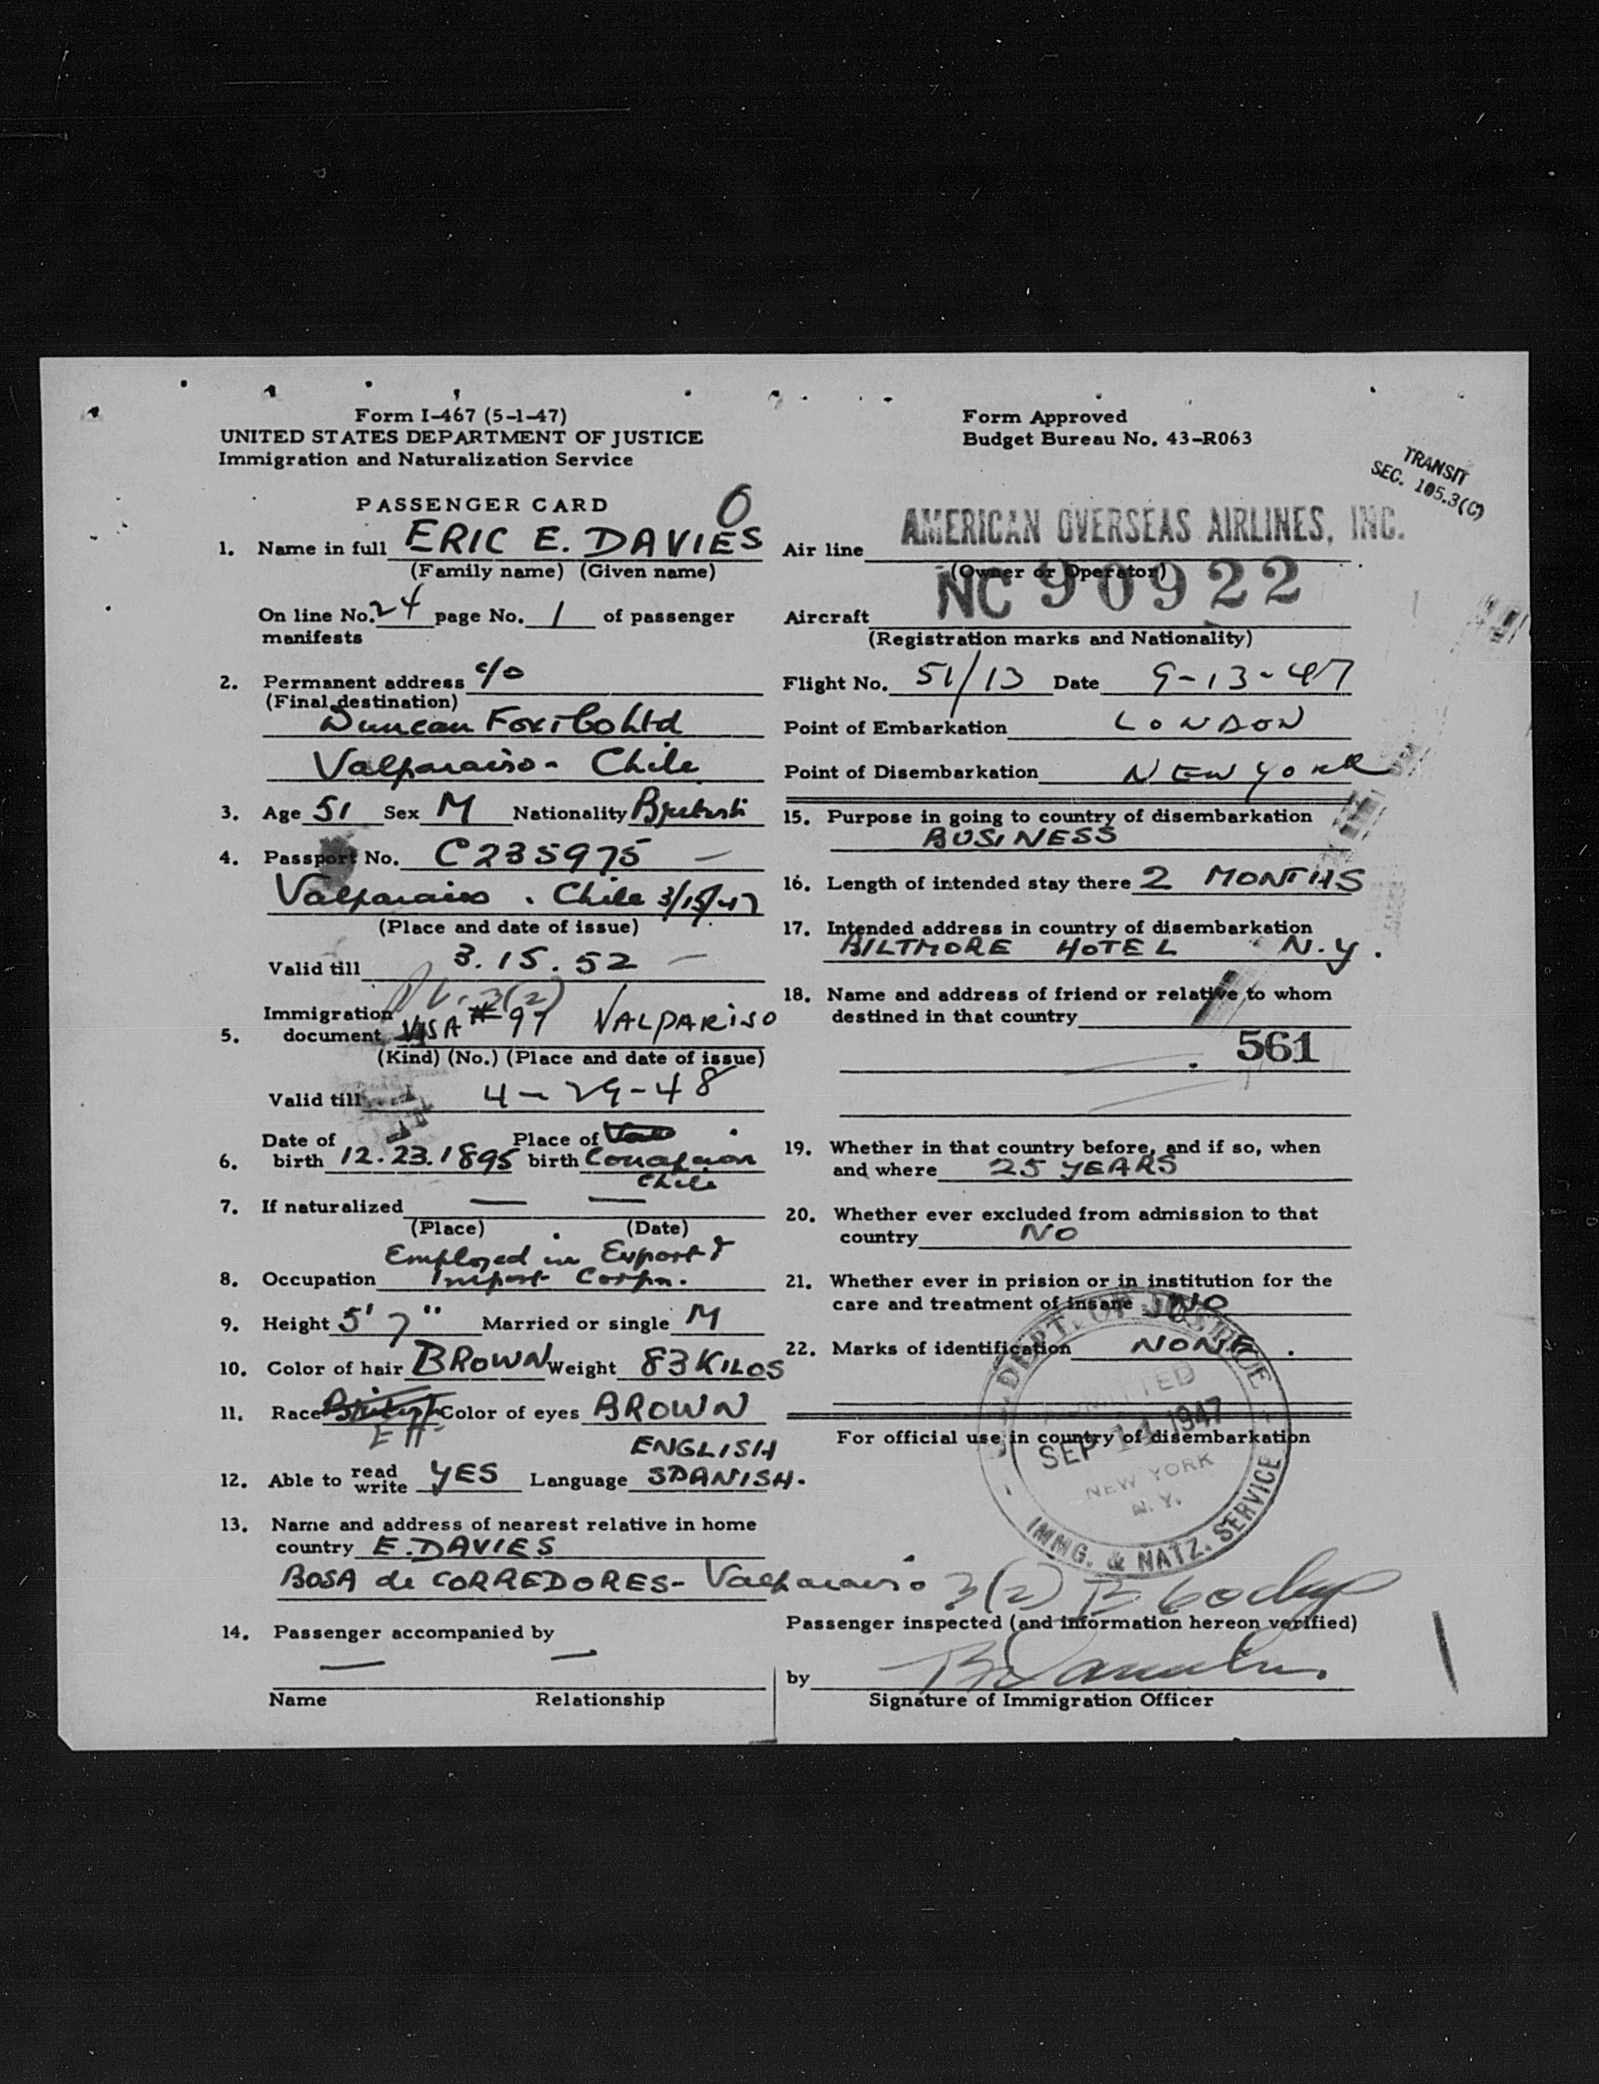 Form I-467 (5-1-47)
UNITED STATES DEPARTMENT OF JUSTICE
Immigration and Naturalization Service
Form Approved
Budget Bureau No. 43-R063
TRANSIT
SEC. 105.3(C)
PASSENGER CARD
O
1. Name in full ERIC E. DAVIES
(Family name) (Given name)
On line No. 24 page No. 1 of passenger
manifests
2. Permanent address c/o
(Final destination)
Duncan Fox & Co Ltd
Valparaiso - Chile
3. Age 51 Sex M Nationality British
4. Passport No. C235975 —
Valparaiso . Chile 3/15/47
(Place and date of issue)
Valid till 3.15.52 —
3(2)
Immigration
5. document VISA # 97 VALPARISO
(Kind) (No.) (Place and date of issue)
Valid till 4-29-48
Date of Place of
6. birth 12.23.1895 birth Concepcion
Chile
7. If naturalized — —
(Place) (Date)
Employed in Export &
8. Occupation Import Corpn.
9. Height 5' 7" Married or single M
10. Color of hair BROWN Weight 83 KILOS
11. Race British Color of eyes BROWN
ENGLISH
12. Able to read write YES Language SPANISH.
13. Name and address of nearest relative in home
country E. DAVIES
BOSA de CORREDORES - Valparaiso
14. Passenger accompanied by
— —
Name Relationship
Air line AMERICAN OVERSEAS AIRLINES, INC.
(Owner or Operator)
Aircraft NC 90922
(Registration marks and Nationality)
Flight No. 51/13 Date 9-13-47
Point of Embarkation LONDON
Point of Disembarkation NEW YORK
15. Purpose in going to country of disembarkation
BUSINESS
16. Length of intended stay there 2 MONTHS
17. Intended address in country of disembarkation
BILTMORE HOTEL N.Y.
18. Name and address of friend or relative to whom
destined in that country
561
19. Whether in that country before, and if so, when
and where 25 YEARS
20. Whether ever excluded from admission to that
country NO
21. Whether ever in prision or in institution for the
care and treatment of insane NO
22. Marks of identification NONE.
For official use in country of disembarkation
DEPT. OF JUSTICE
ADMITTED
SEP 14 1947
NEW YORK
N.Y.
IMMG. & NATZ. SERVICE
3(2)
Passenger inspected (and information hereon verified)
by
Signature of Immigration Officer